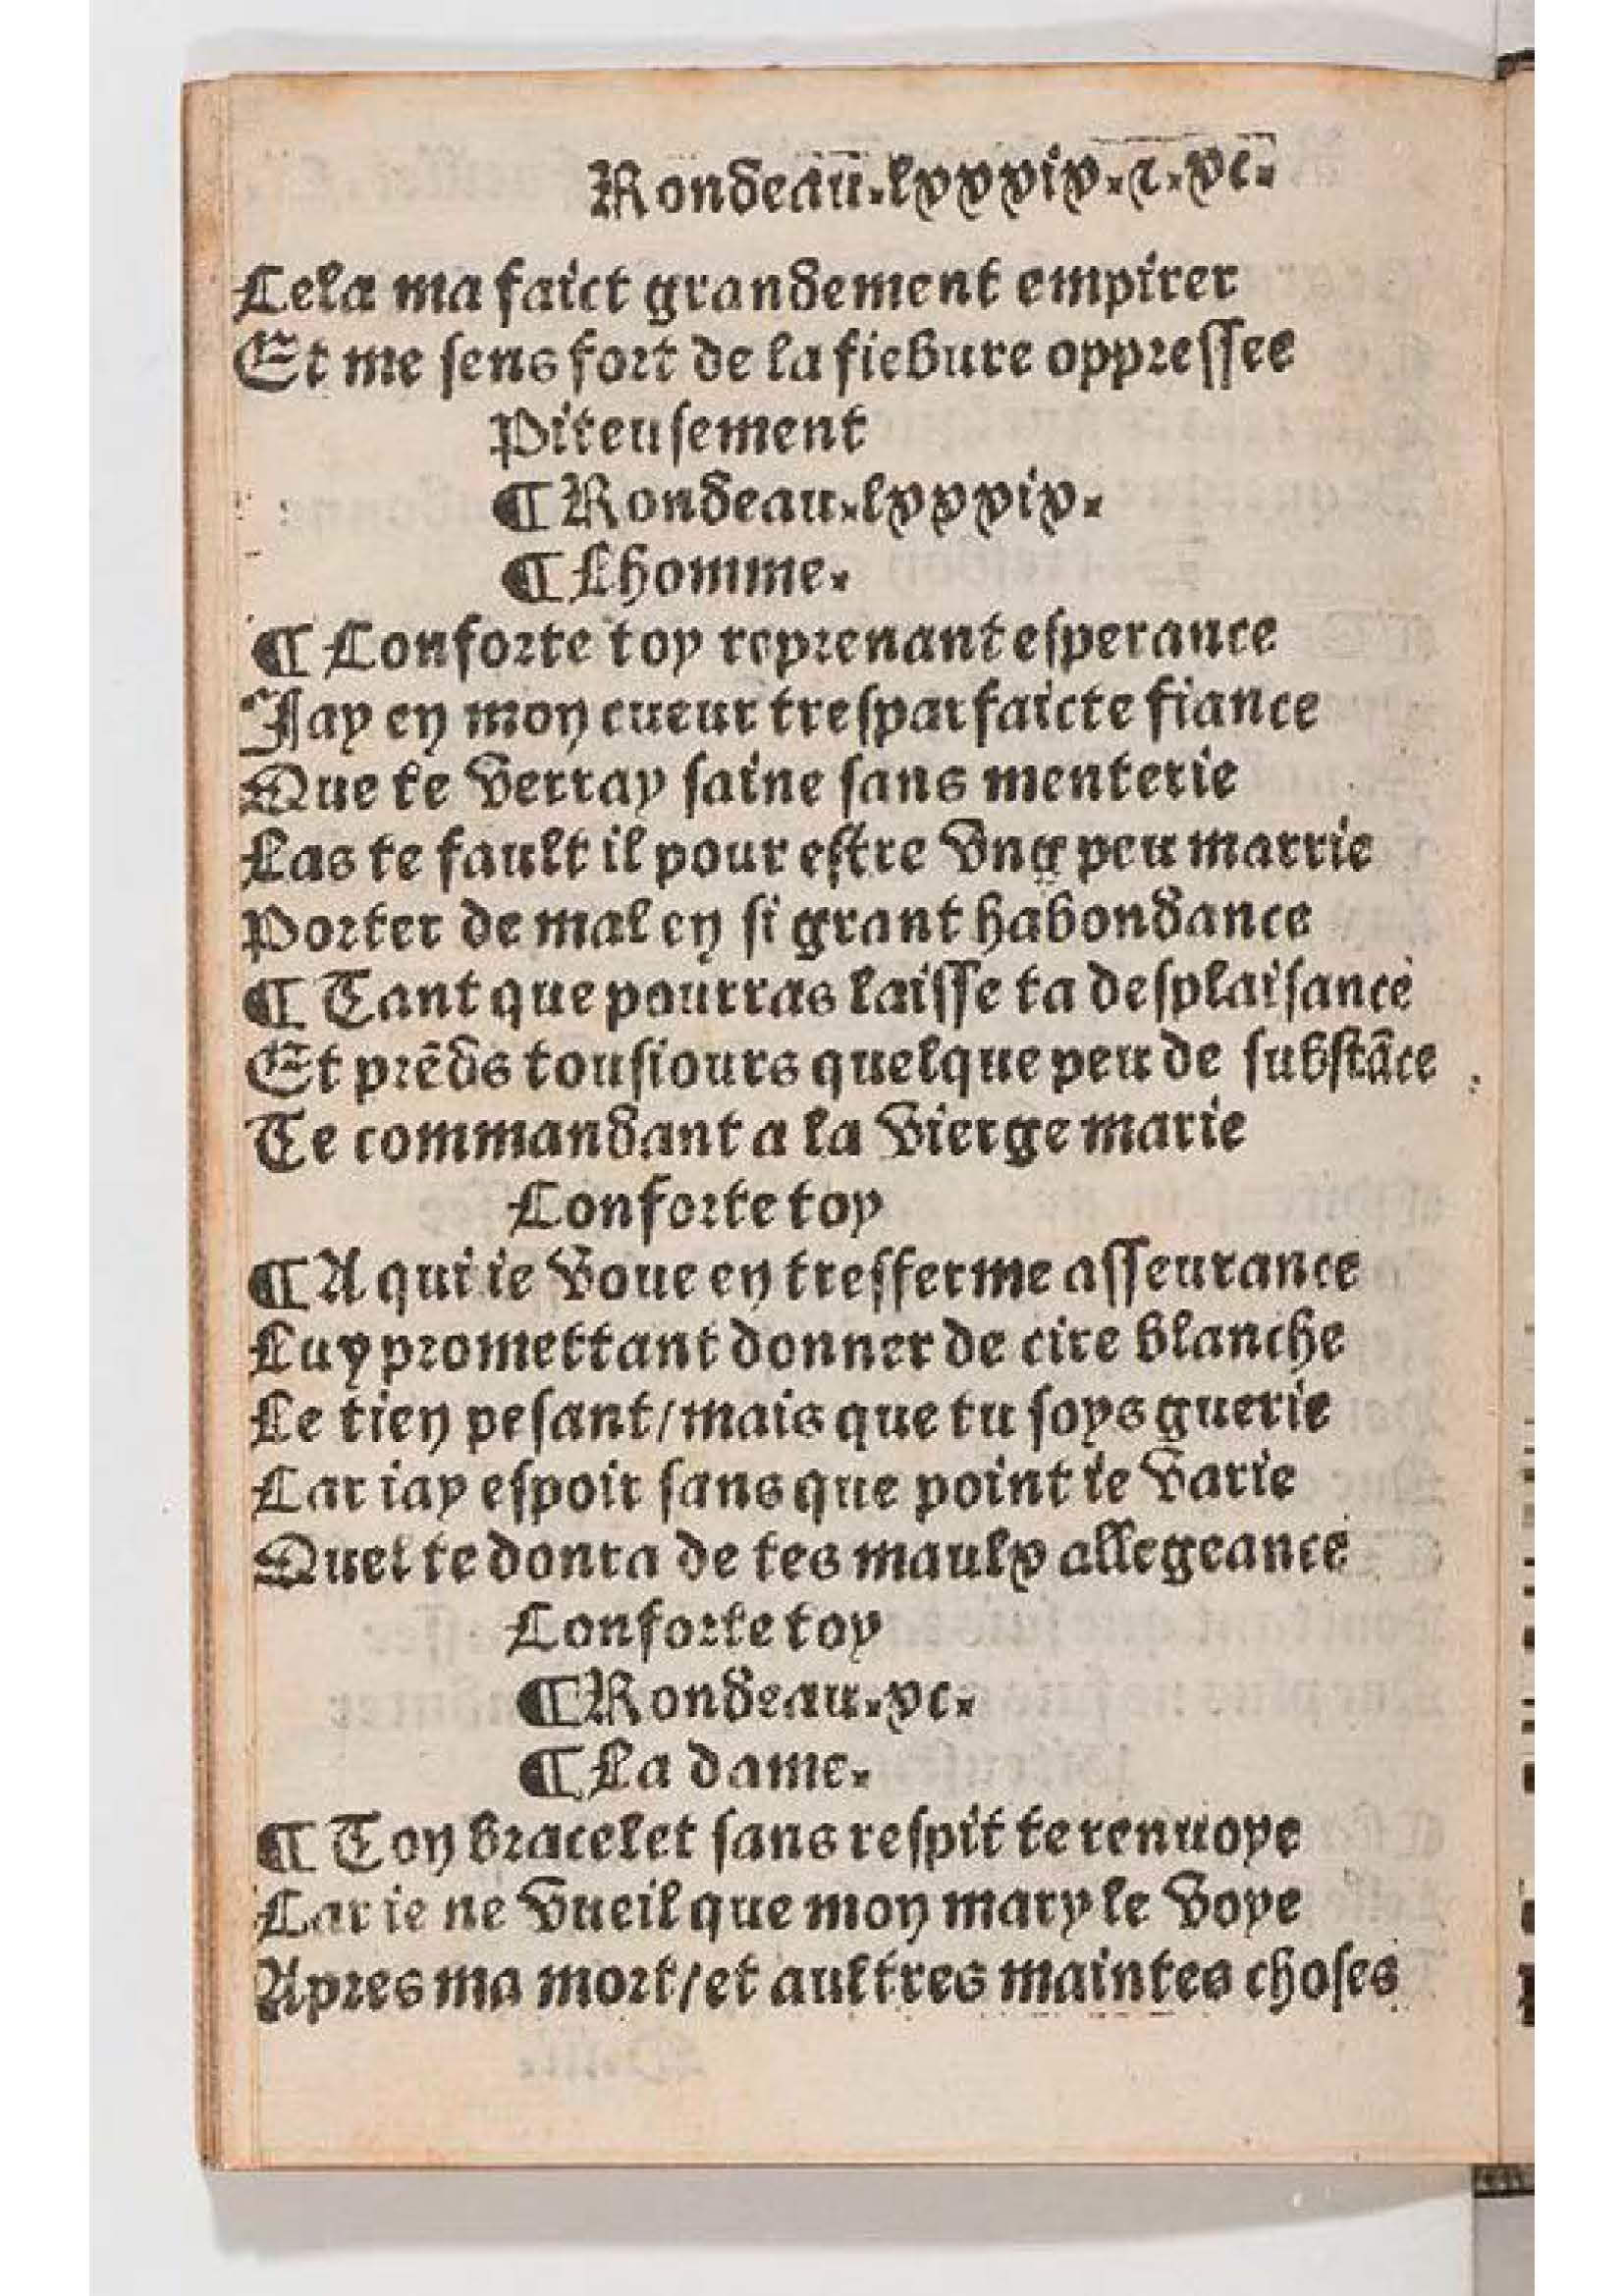 Rondeau. lxxxix. ⁊. xc.
Cela ma faict grandement empirer
Et me sens fort de la fiebure oppressee
Piteusement
¶ Rondeau. lxxxix.
¶ Lhomme.
¶ Conforte toy reprenant esperance
Jay en mon cueur tresparfaicte fiance
Que te verray saine sans menterie
Las te fault il pour estre vng peu marrie
Porter de mal en si grant habondance
¶ Tant que pourras laisse ta desplaisance
Et prẽds tousiours quelque peu de substãce
Te commandant a la vierge marie
Conforte toy
¶ A qui ie voue en tresferme asseurance
Luy promettant donner de cire blanche
Le tien pesant / mais que tu soys guerie
Car iay espoir sans que point ie varie
Quel te donra de tes maulx allegeance
Conforte toy
¶ Rondeau. xc.
¶ La dame.
¶ Ton bracelet sans respit te renuoye
Car ie ne vueil que mon mary le voye
Apres ma mort / et aultres maintes choses